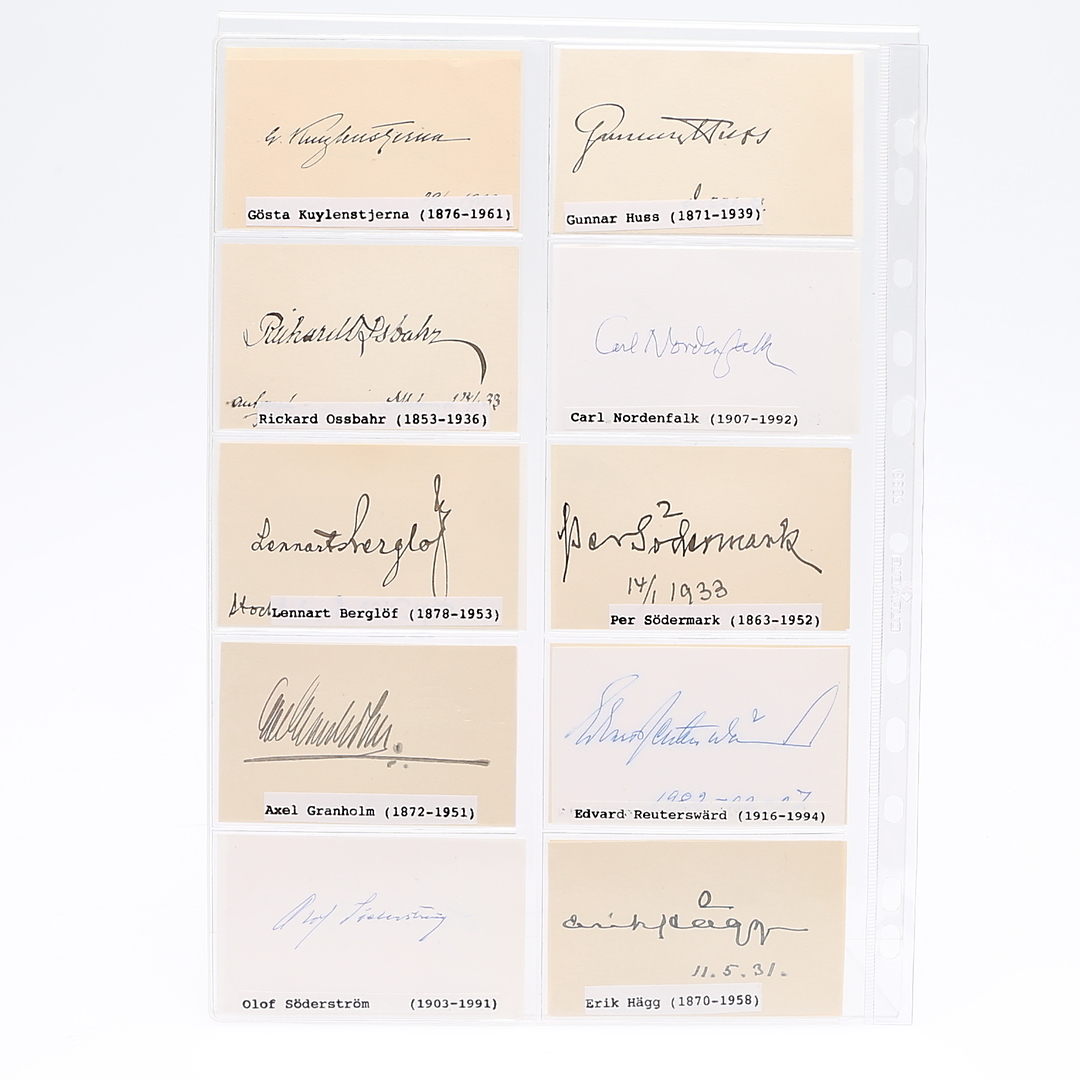 G. Kuylenstjerna
Gösta Kuylenstjerna (1876-1961)
Gunnar Huss
Gunnar Huss (1871-1939)
Rickard Ossbahr
Rickard Ossbahr (1853-1936)
Carl Nordenfalk
Carl Nordenfalk (1907-1992)
Lennart Berglöf
Lennart Berglöf (1878-1953)
Per Södermark
14/1 1933
Per Södermark (1863-1952)
Axel Granholm
Axel Granholm (1872-1951)
Edvard Reuterswärd
Edvard Reuterswärd (1916-1994)
Olof Söderström
Olof Söderström (1903-1991)
Erik Hägg
11.5.31.
Erik Hägg (1870-1958)